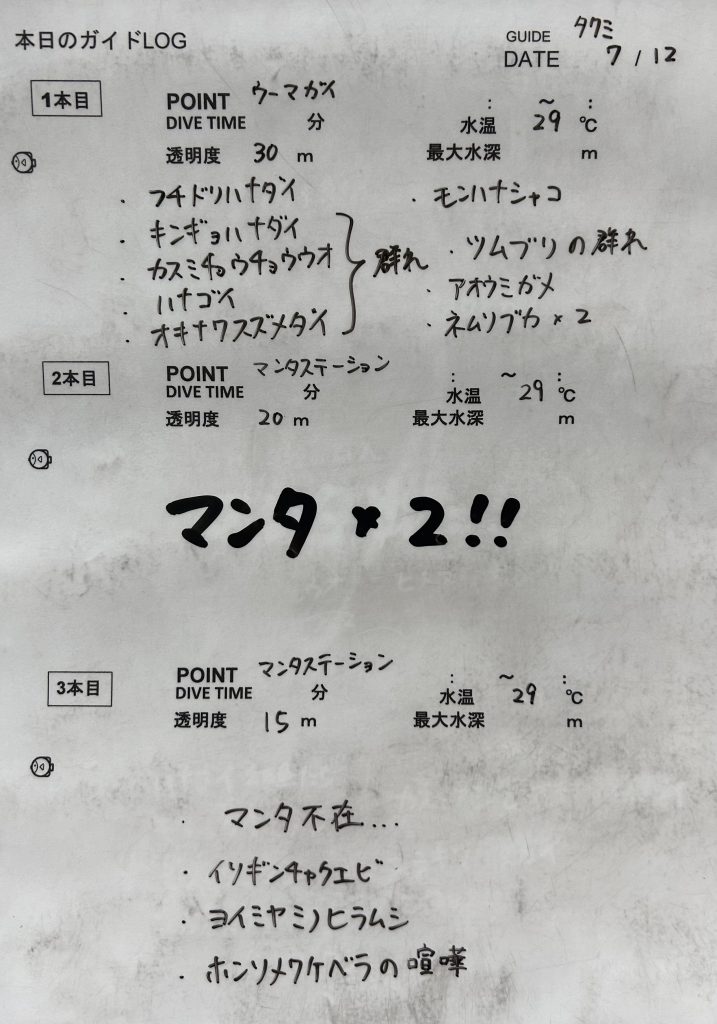 本日のガイドLOG
GUIDE タクミ
DATE 7 / 12
1本目
POINT ウーマガイ
: ~ :
DIVE TIME 分
水温 29 ℃
透明度 30 m
最大水深 m
・フチドリハナダイ
・モンハナシャコ
・キンギョハナダイ
・カスミチョウチョウウオ
ハナゴイ
・オキナワスズメダイ
群れ
・ツムブリの群れ
・アオウミガメ
・ネムリブカ × 2
2本目
POINT マンタステーション
: ~ :
DIVE TIME 分
水温 29 ℃
透明度 20 m
最大水深 m
マンタ × 2!!
3本目
POINT マンタステーション
: ~ :
DIVE TIME 分
水温 29 ℃
透明度 15 m
最大水深 m
・マンタ不在...
・イソギンチャクエビ
・ヨイミヤミノヒラムシ
・ホンソメワケベラの喧嘩